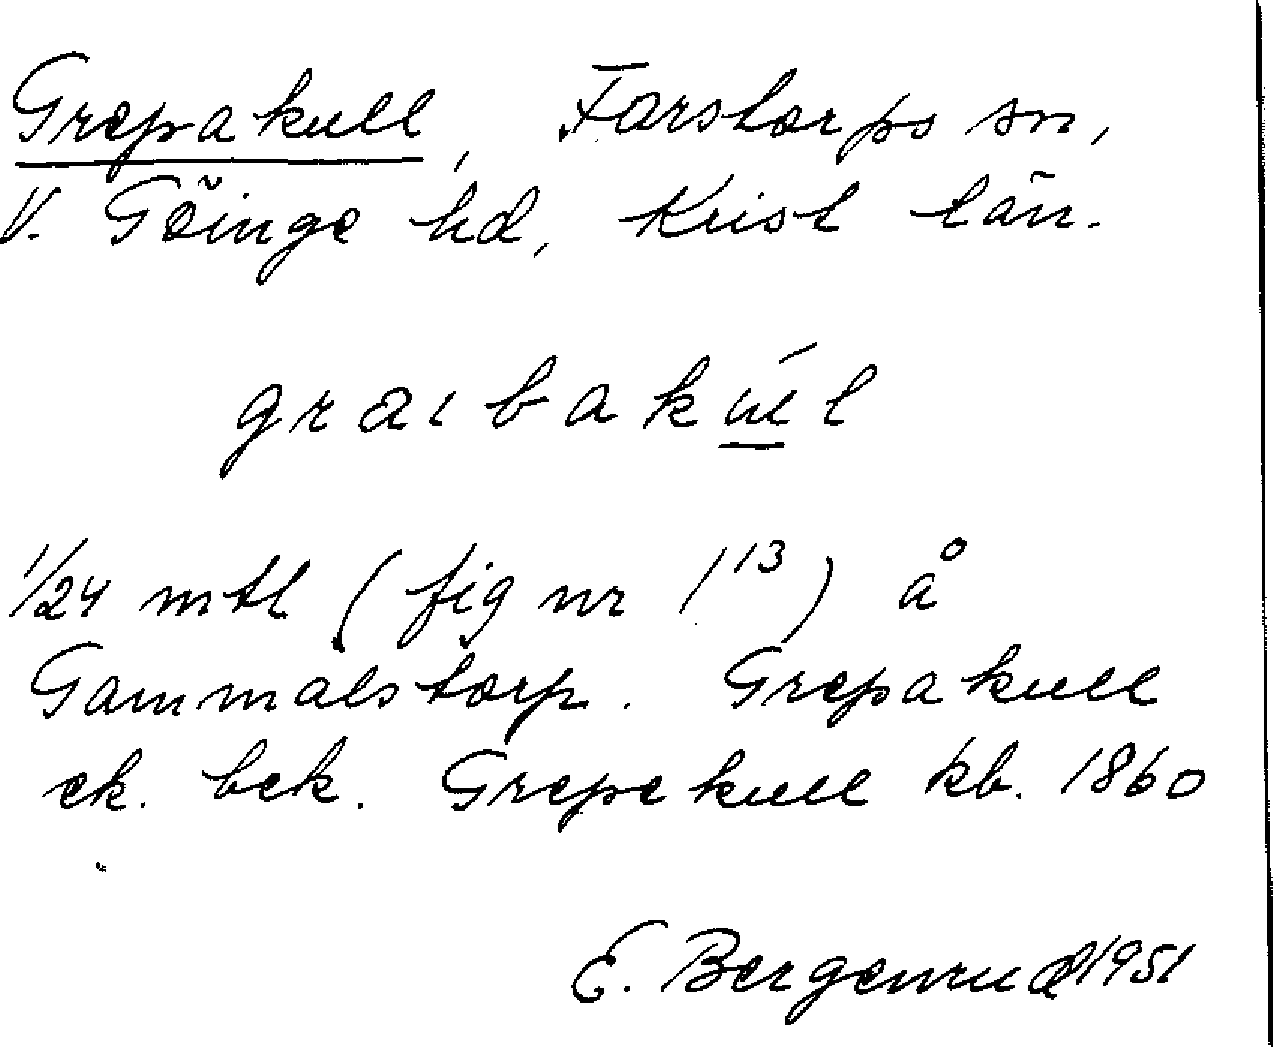 Grepakull, Farstorps sn,
V. Göinge hd, Krist län.
graıbakúl
1/24 mtl (fig nr 1¹³) å
Gammalstorp. Grepakull
ek. bck. Grepekull kb. 1860
E. Bergenrud 1951